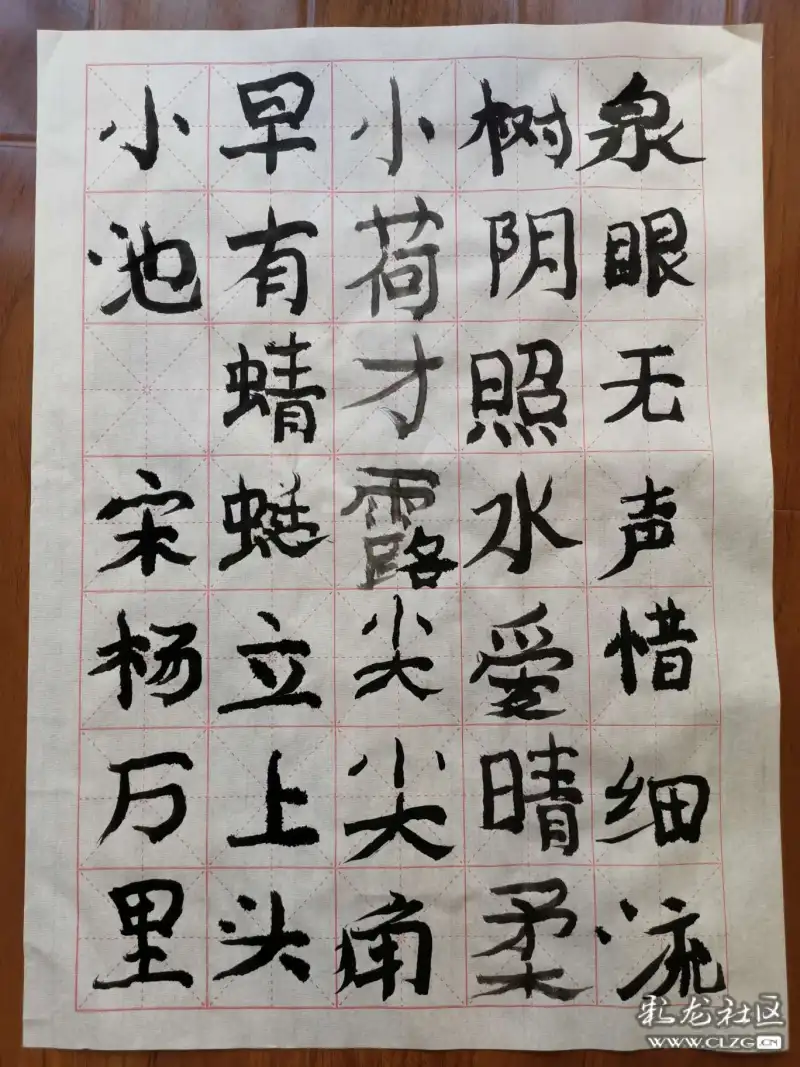 泉眼无声惜细流
树阴照水愛晴柔
小荷才露尖尖角
早有蜻蜓立上头
小池 宋杨万里
彩龙社区
WWW.CLZG.CN